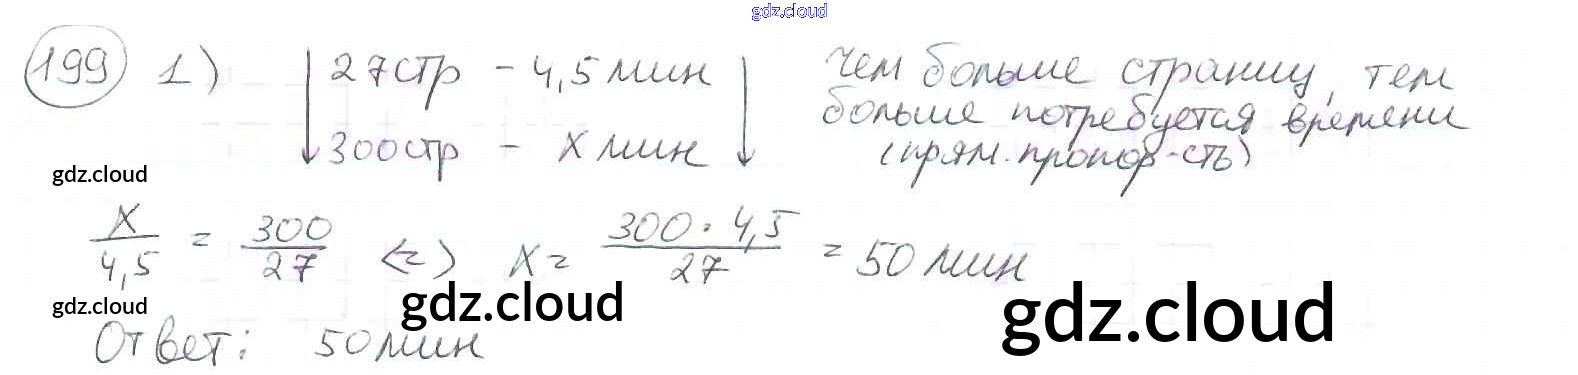 gdz.cloud
199 1) 27стр - 4,5 мин чем больше страниц, тем
больше потребуется времени
300стр - х мин (прям. пропор-сть)
gdz.cloud
x/4,5 = 300/27 <=> x = 300·4,5/27 = 50 мин
gdz.cloud gdz.cloud gdz.cloud
Ответ: 50 мин